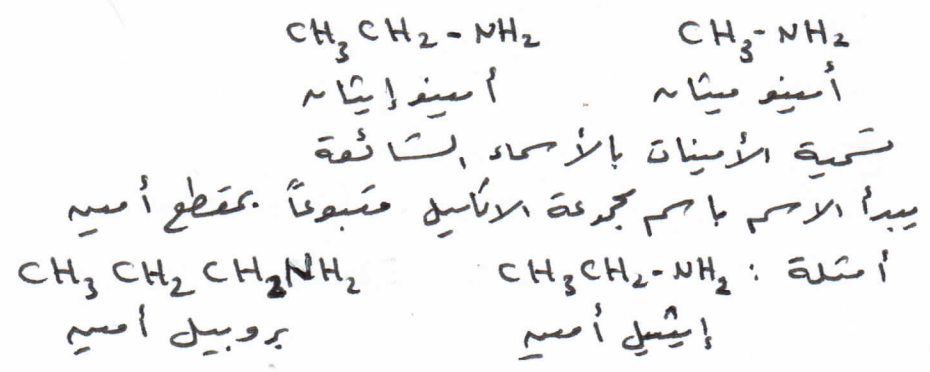 CH₃-NH₂ CH₃CH₂-NH₂
أمينو ميثان أمينو إيثان
تسمية الأمينات بالأسماء الشائعة
يبدأ الاسم باسم مجموعة الالكيل متبوعاً بمقطع أمين
أمثلة : CH₃CH₂-NH₂ CH₃CH₂CH₂NH₂
إيثيل أمين بروبيل أمين